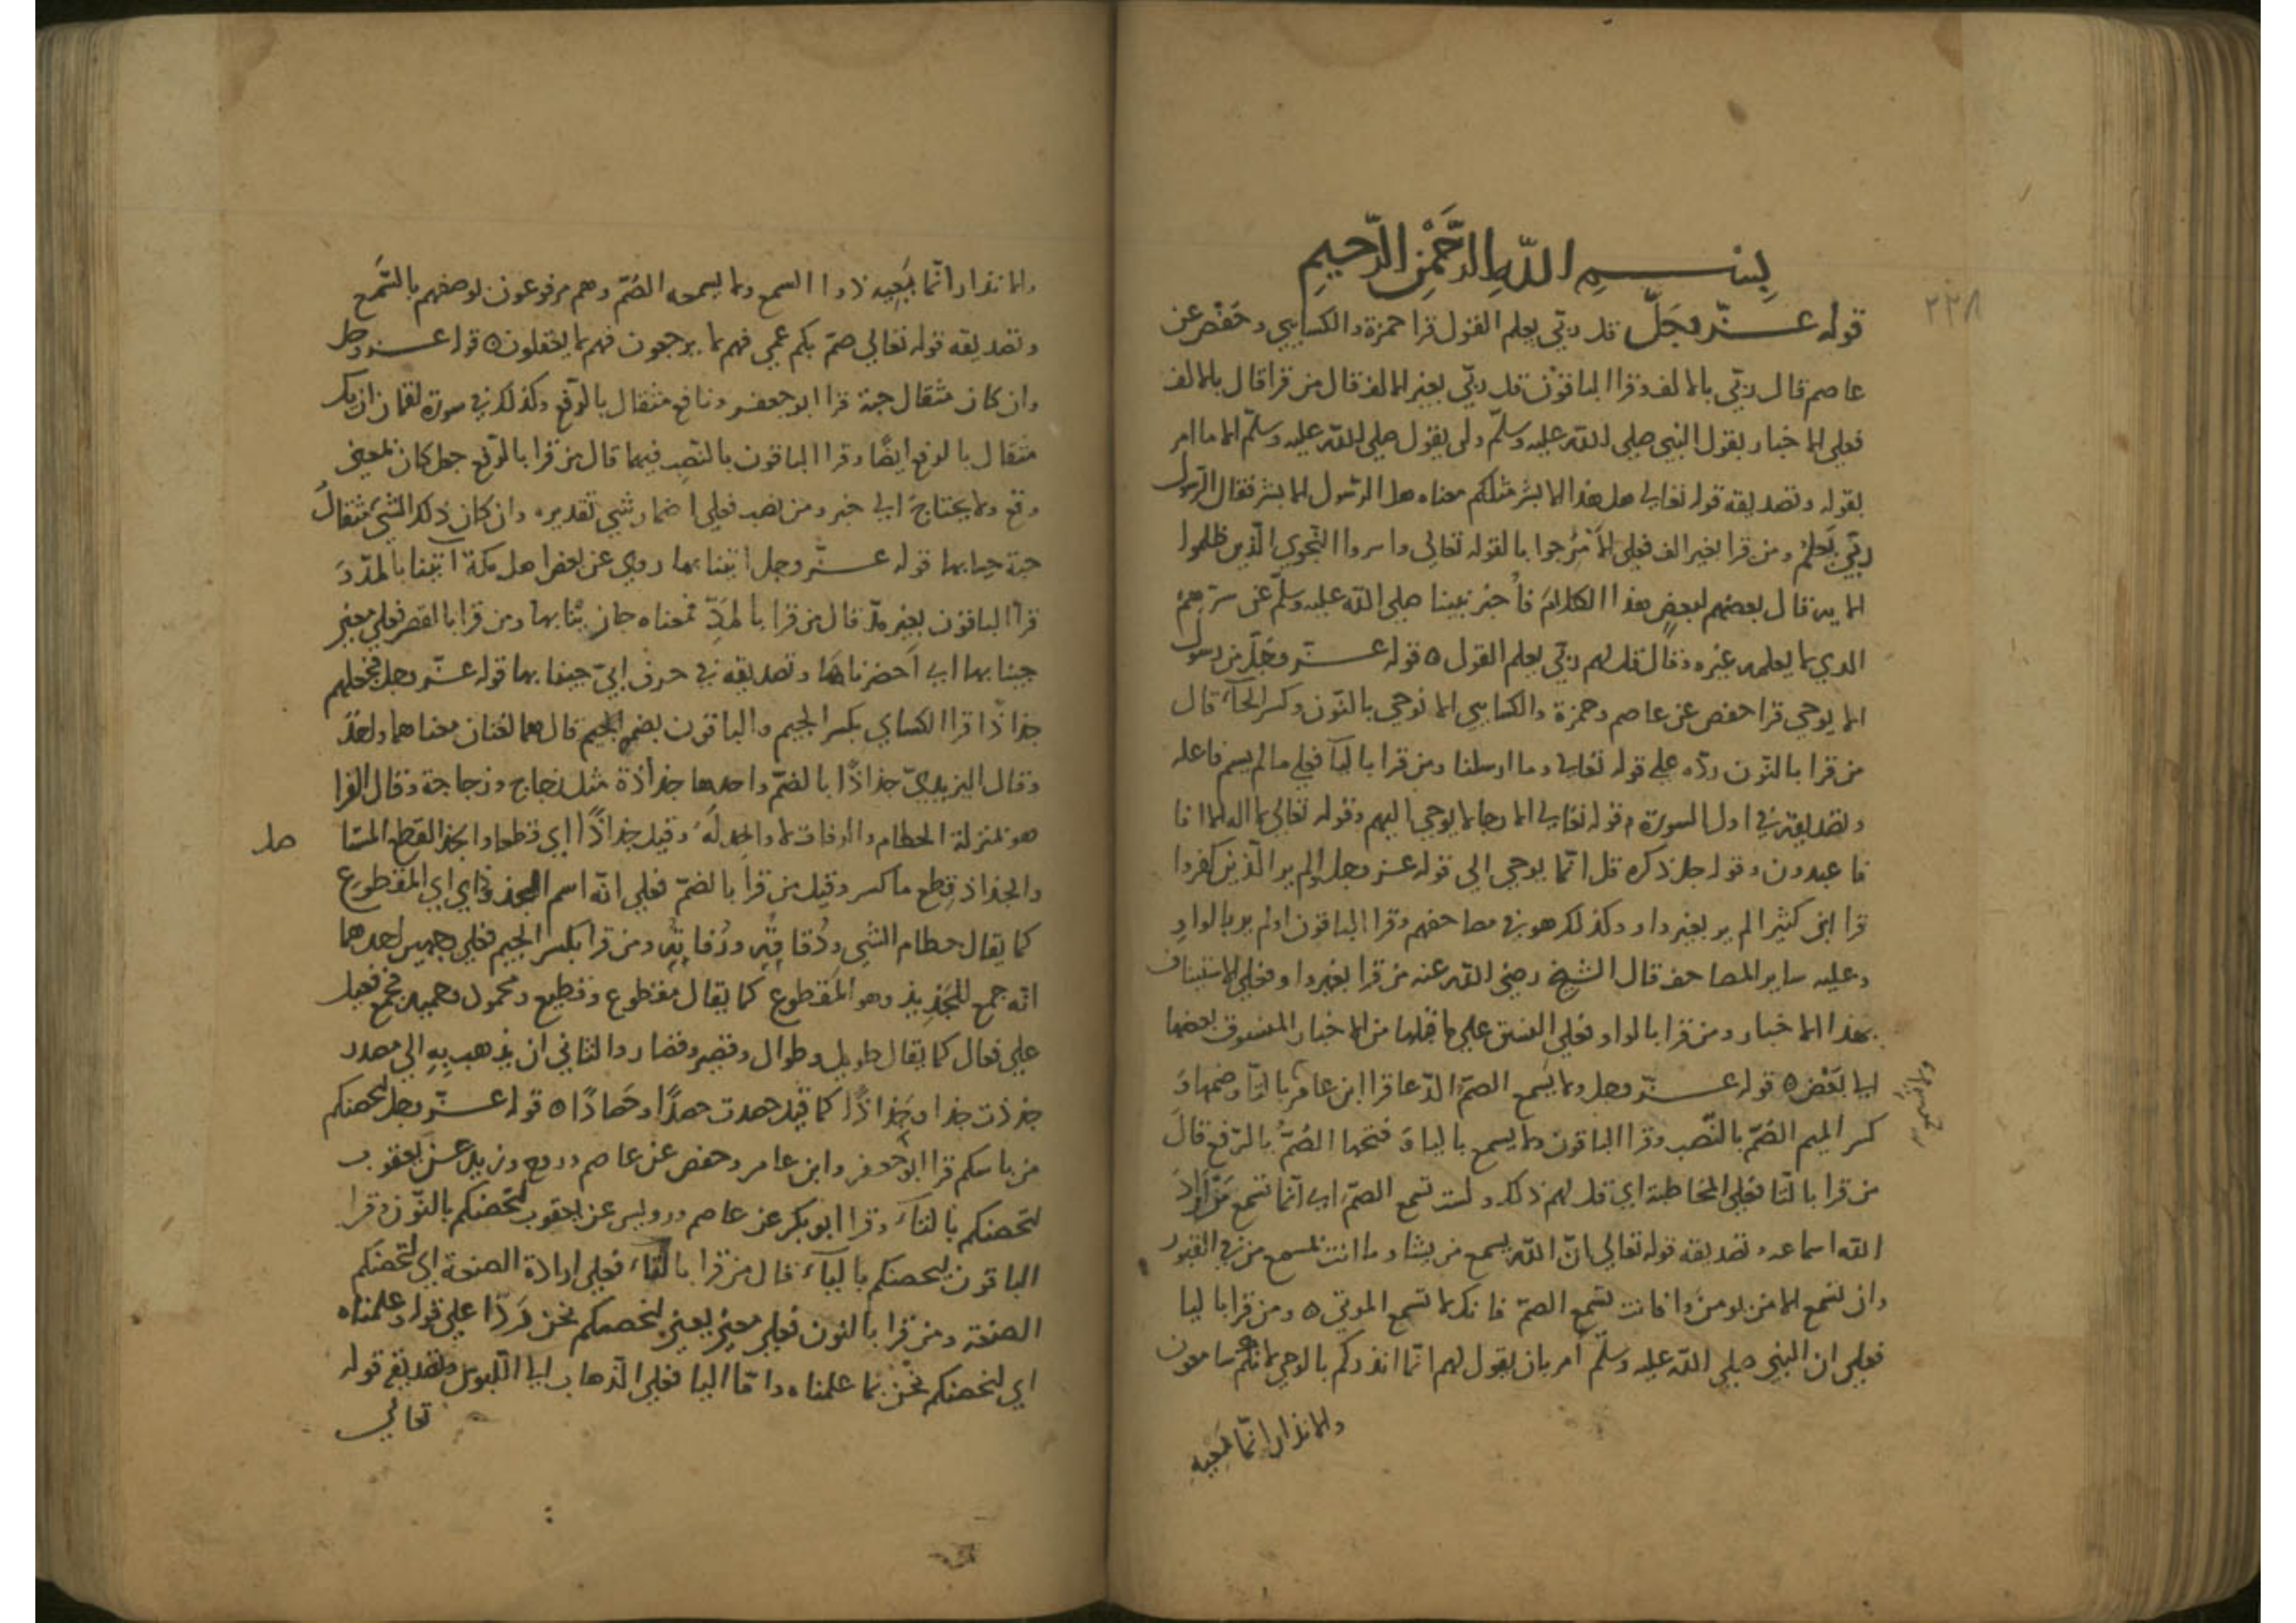 ٢٢٨
بِسْمِ اللّٰهِ الرَّحْمٰنِ الرَّحِيمِ
قوله عزّ وجَلّ قل ربّي يعلم القول قرا حمزة والكسايي وحَفْص عن
عاصم قال ربّي بالالف وقرا الباقون قل ربّي بغير الالف قال من قرا قال بالالف
فعلى الاخبار بقول النبي صلى الله عليه وسلّم ولن يقول صلى الله عليه وسلّم الا ما امر
بقوله وتصديقه قوله تعالى هل هذا الا بشر مثلكم معناه هل الرسول الا بشر فقال الرسول
ربّي يَعلمُ ومن قرا بغير الف فعلى الاَمر جوابا لقوله تعالى واسروا النّجوي الّذين ظلموا
الاية قال بعضهم لبعضٍ هذا الكلام فأخبر نبينا صلى الله عليه وسلّم عن سرّهم
الذي لا يعلمه غيره وقال قل لهم ربّي يعلم القول ٥ قوله عزّ وجَلّ من رسول
الا يوحي قرا حفص عن عاصم وحمزة والكسايي الا نوحي بالنّون وكسر الحآء قال
من قرا بالنّون ردّه على قوله تعالى وما ارسلنا ومن قرا باليآ فعلى ما لم يسم فاعله
وتصديقه في اول السورة وقوله تعالى الا رجالا يوحي اليهم وقوله تعالى لا اله الا انا
فاعبدون وقوله جل ذكره قل انّما يوحي الى قوله عز وجل اولم ير الّذين كفروا
قرا ابن كثير الم ير بغير واو وكذلك هو في مصاحفهم وقرا الباقون اولم ير بالواوِ
وعليه ساير المصاحف قال الشيخ رضي الله عنه من قرا بغير واو فعلى الاستيناف
بهذا الاخبار ومن قرا بالواو فعلى النسق على ما قبلها من الاخبار المنسوق بعضها
الى بَعْض ٥ قوله عزّ وجل ولا يَسمع الصمّ الدّعا قرا ابن عامر بالتّا وضمها وَ
كسر الميم الصُمّ بالنّصب وقرا الباقون ولا يسمع باليا وَ فتحها الصُمّ بالرّفع قالَ
من قرا بالتّا فعلى المخاطبة اي قل لهم ذلك ولست تسمع الصمّ اي انّما تسمع مَن اَرادَ
الله اسماعه وتصديقه قوله تعالى انّ الله يسمع من يشا وما انت بمسمع من في القبور
وان تسمع الا من يومن وافانت تسمع الصمّ فانك لا تسمع الموتى ٥ ومن قرا باليا
فعلى ان النبي صلى الله عليه وسلّم أمر بان يقول لهم انّما انذركم بالوحي لا انكم سامعون
والانذار انّما يَجيبه
والانذار انّما يَجيبه ذووا السمع ولا يسمعه الصُمّ وهم مرفوعون لوصفهم بالسَّمع
وتصديقه قوله تعالى صمّ بكم عمي فهم لا يرجعون فهم لا يعقلون ٥ قوله عز وجل
وان كان مثقال حبة قرا ابو جعفر ونافع مثقال بالرّفع وكذلك في سورة لقمان ان تك
مثقال بالرفع ايضًا وقرا الباقون بالنّصب فيهما قال من قرا بالرّفع جعل كان بمعنى
وقع ولا يحتاج الى خبر ومن نصب فعلى اضمار شيٍ تقديره وان كان ذلك الشيء مثقالَ
حبة جيا بها قوله عزّ وجل اتينا بها روي عن بعض اهل مكة آتينا بالمدّ وَ
قرا الباقون بغير مدّ قال من قرا بالمدِّ فمعناه جازيْنا بها ومن قرا بالقصر فعلى معنى
جينا بها اي اَحضرناها وتصديقه في حرف ابيّ جينا بها قوله عزّ وجل فجعلهم
جذاذًا قرا الكساي بكسر الجيم والباقون بضم الجيم قال هما لغتان معناهما واحدٌ
وقال اليزيديّ جذاذًا بالضمّ واحدها جذاذة مثل زجاج وزجاجة وقال الفرا
هو بمنزلة الحطام والرفات لا واحِد لَهُ وقيل جذاذًا اي قطعا والجذ القطع المستا
صل
والجذاذ قِطع ما كسر وقيل من قرا بالضمّ فعلى انّه اسم المجذوذ اي المقطوع
كما يقال حطام الشي ودُقاقُه ورُفاتُه ومن قرا بكسر الجيم فعلى وجهين احدهما
انّه جمع للجَذِيذ وهو المقطوع كما يقال مقطوع وقطيع ومحمول وحميل فجمع فعيل
على فعال كما يقال طويل وطوال وقصير وقصار والثاني ان يذهب بِهِ الى مصدر
جذذت جذا وجِذاذًا كما قيل حصدت حصدًا وحَصادًا ٥ قوله عزّ وجل لتحصنكم
من باسكم قرا ابو جعفر وابن عامر وحفص عن عاصم وروح وزيد عن يعقوب
لتحصنكم بالتآء وقرا ابو بكر عن عاصم ورويس عن يعقوب لنحصنكم بالنّون وقرا
الباقون ليحصنكم باليآء قال من قرا بالتآء فعلى ارادة الصنعة اي لتحصنكم
الصنعة ومن قرا بالنون فعلى معنى يعني لنحصنكم نحن ردًّا على قوله وعلمناه
اي لنحصنكم نحن بما علمناه وامّا اليا فعلى الذهاب الى اللّبوس وتصديقه قوله
تعالى